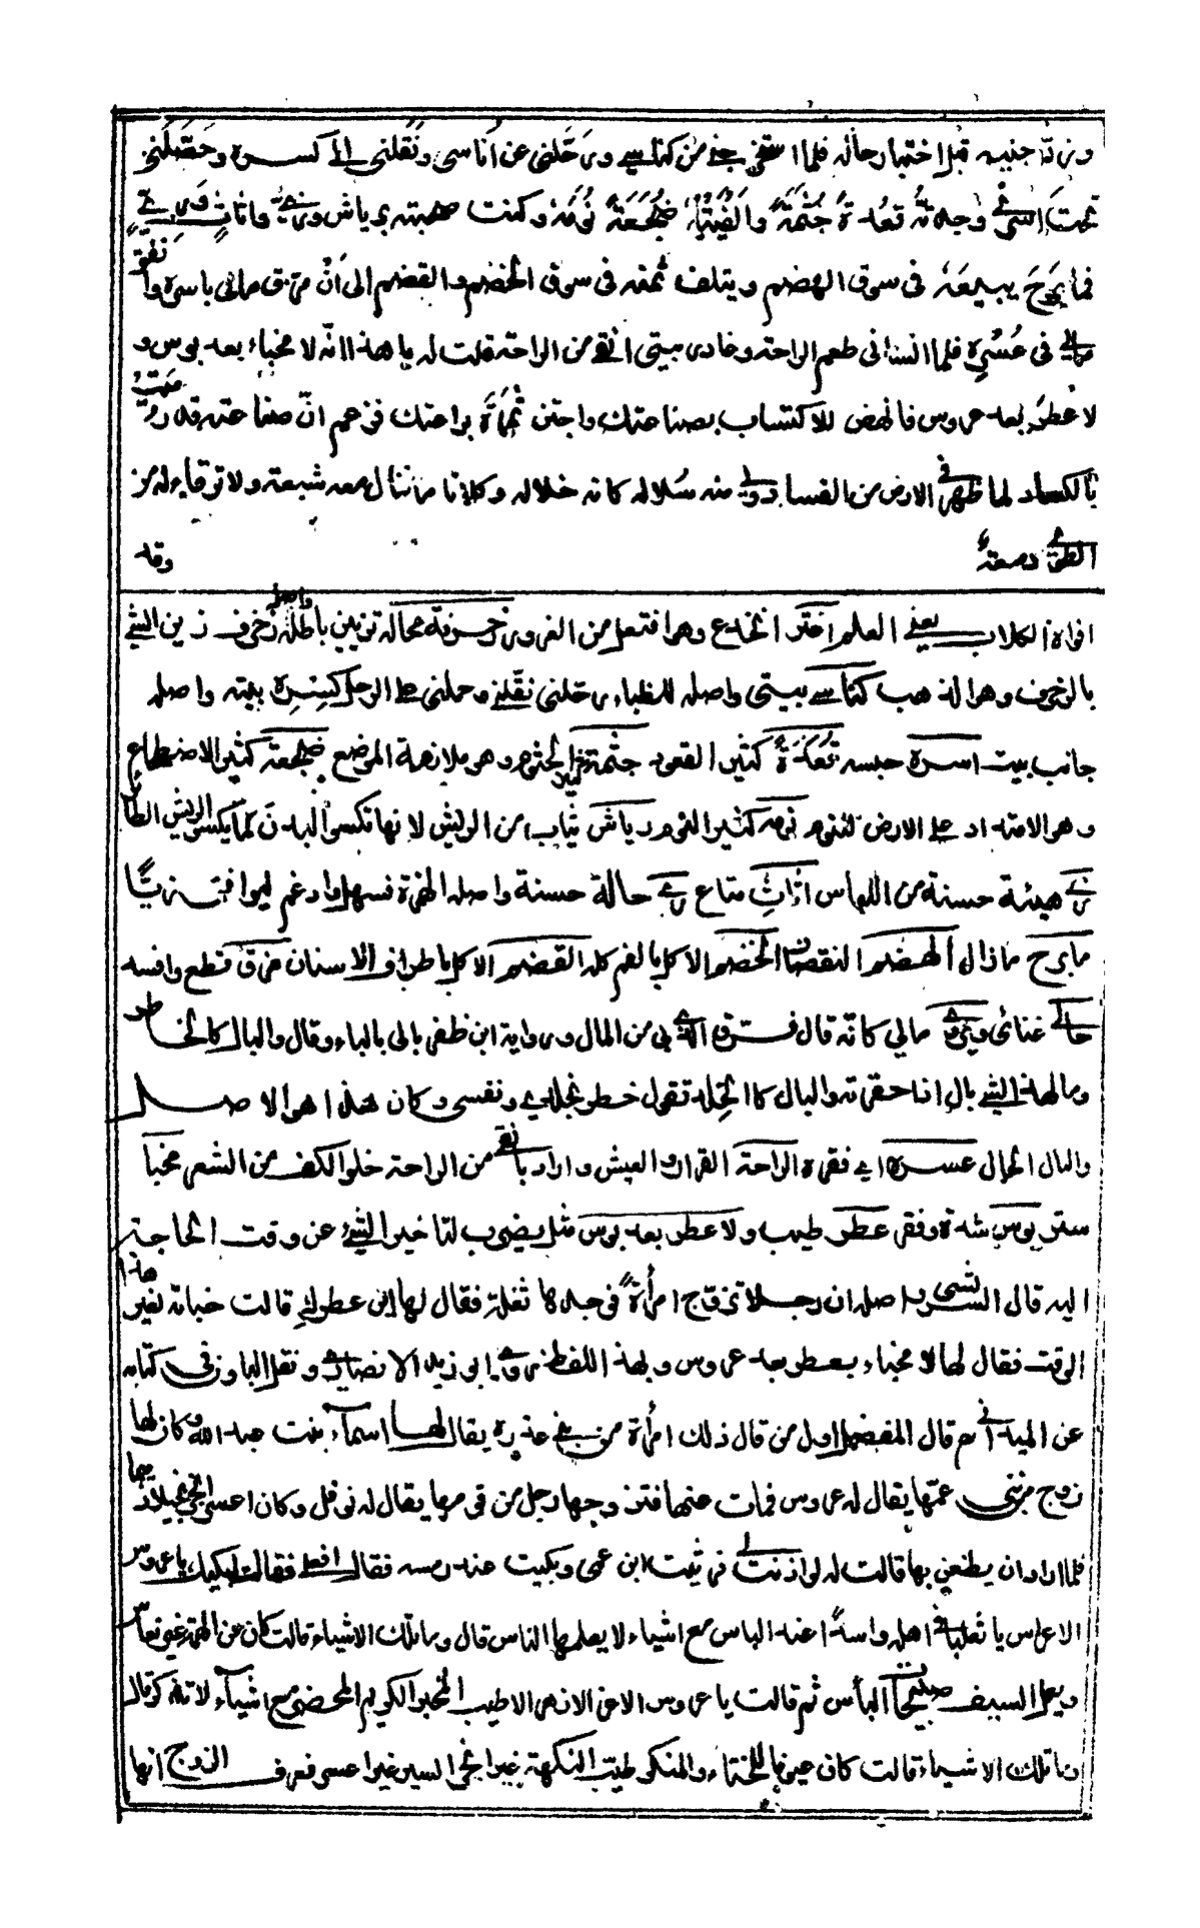 وزوّجنيه قبل اختبار حاله فلما استخرجني من كناسي ورحّلني عن أناسي ونقلني إلى كسره وحصّلني
تحت أسره وجدته قُعَدة جُثَمة وألفيته ضُجَعة نُوَمة وكنت صحبته برياش وزيّ وأثاث وريّ
فما برح يبيعه في سوق الهضم ويتلف ثمنه في سوق الخضم والقضم الى أن مزق مالي باسره وأنفق
مالي في عسره فلما انساني طعم الراحة وغادر بيتي انقى من الراحة قلت له يا هذا انّه لا مخباء بعد بوس و
لا عطر بعد عروس فانهض للاكتساب بصناعتك واجتن ثمرة براعتك فزعم انّ صناعته قد رميت
بالكساد لما ظهر في الارض من الفساد ولي منه سلالة كانه خلالة وكلانا ما ننال معه شبعة ولا ترقاء له من
الطوى دمعة وقد
افواه الكلاب يعني العلم اغتر انخدع وهو افتعل من الغرور زخرفة محاله تزيين باطله واصل زخرف زين الشيء
بالزخرف وهو الذهب كناسي بيتي واصله للظباء رحّلني نقلني وحملني على الرحل كسره بيته واصله
جانب بيت اسره حبسه قعدة كثير القعود جثمة الجثوم وهو ملازمة الموضع ضجعة كثير الاضطجاع
وهو الامتداد على الارض للنوم نومه كثير النوم رياش ثياب من الريش لانها تكسو البدن كما يكسو الريش الطائر
زي هيئة حسنة من اللباس اثاث متاع ري حالة حسنة واصله الهمزة فسهل وادغم ليوافق زيّا
ما برح ما زال الهضم النقصان الخضم الاكل بالفم كله القضم الاكل باطراف الاسنان مزق قطع وافسد
حالي غنائي ويروى مالي كانه قال فرق الذي لي من المال ورواية ابن ظفر بالي بالباء وقال والبال كالخاطر
وما لهذا الشيء بال اذا حقرته والبال كالخلد تقول خطر بخلدي ونفسي وكان هذا هو الاصل
والبال الحال عسره اي فقره الراحة القرار والعيش واراد بانقى من الراحة خلو الكف من الشعر مخبا
ستر بوس شدة وفقر عطر طيب ولا عطر بعد بوس مثل يضرب لتاخير الشيء عن وقت الحاجة
اليه قال الشريشي واصله ان رجلا تزوّج امرأة فوجدها ثفلة فقال لها اين عطرك قالت خباته لغير هذا
الوقت فقال لها لا مخباء بعطر بعد عروس وبهذا اللفظ رواه ابو زيد الانصاري ونقل الباوزفى كتابه
عن الميداني ثم قال المفضل اول من قال ذلك امرأة من بني عذره يقال لها اسماء بنت عبد الله وكان لها
زوج من بني عمّها يقال له عروس فمات عنها فتزوجها رجل من قومها يقال له نوفل وكان اعسر ابخر بخيلا دميما
فلما اراد ان يظعن بها قالت له لو اذنت لي فرثيت ابن عمي وبكيت عند رمسه فقال افعلي فقالت ابكيك يا عروس
الاعراس يا ثعلبا في اهله واسدًا عند الباس مع اشياء لا يعلمها الناس قال وما تلك الاشياء قالت كان عن الهمة غير نعاس
ويعمل السيف صبيحات البأس ثم قالت يا عروس الاغر الازهر الاطيب المخبر الكريم المحضر مع اشياء لا تذكر قال
وما تلك الاشياء قالت كان عيوفا للخناء والمنكر طيب النكهة غير ابخر ايسر غير اعسر فعرف الزوج انها